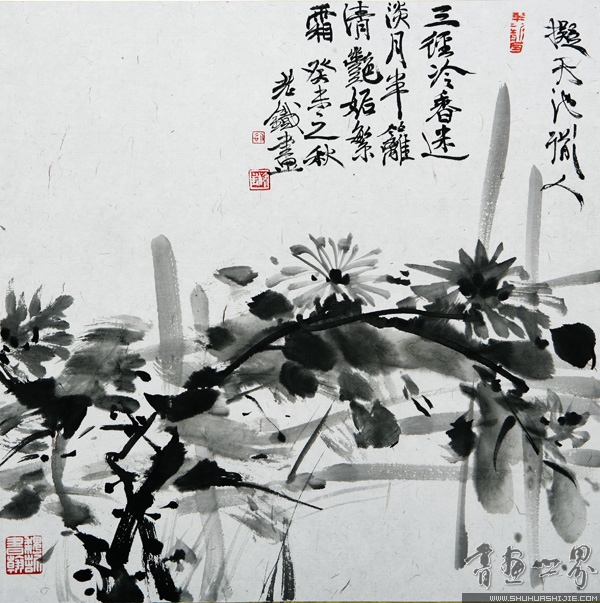 擬天池人
三徑冷香迷
淡月半籬
清艷妬繁
霜 癸未之秋
老鐵畫
書画世界
WWW.SHUHUASHIJIE.COM